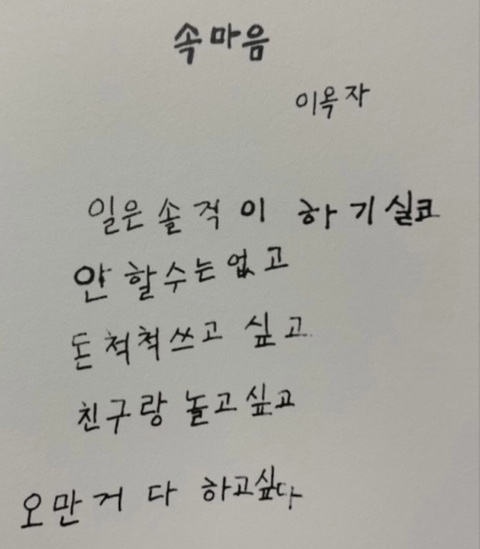 속마음
이옥자
일은 솔적이 하기 실코
안 할수는 없고
돈 척척쓰고 싶고
친구랑 놀고싶고
오만거 다 하고싶다